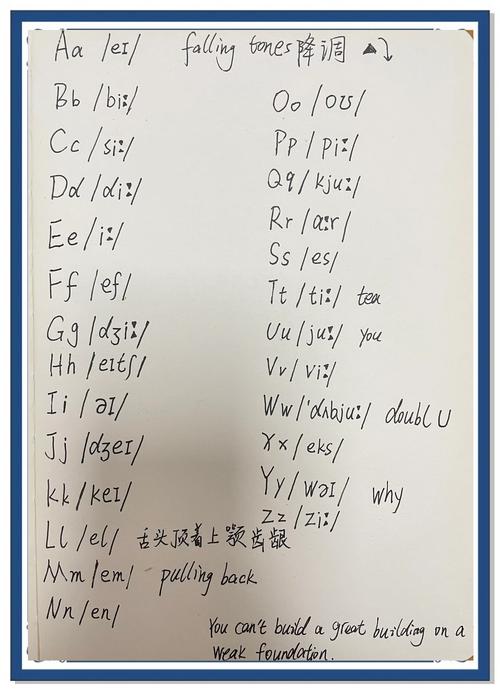 Aa /eɪ/ falling tones降调 ▲⤵
Bb /biː/
Cc /siː/
Dd /diː/
Ee /iː/
Ff /ef/
Gg /dʒiː/
Hh /eɪtʃ/
Ii /əɪ/
Jj /dʒeɪ/
kk /keɪ/
Ll /el/ 舌头顶着上颚齿龈
Mm /em/ pulling back
Nn /en/
Oo /oʊ/
Pp /piː/
Qq /kjuː/
Rr /ɑːr/
Ss /es/
Tt /tiː/ tea
Uu /juː/ you
Vv /viː/
Ww /'dʌbjuː/ doubl U
Xx /eks/
Yy /wəɪ/ why
Zz /ziː/
You can't build a great building on a
weak foundation.